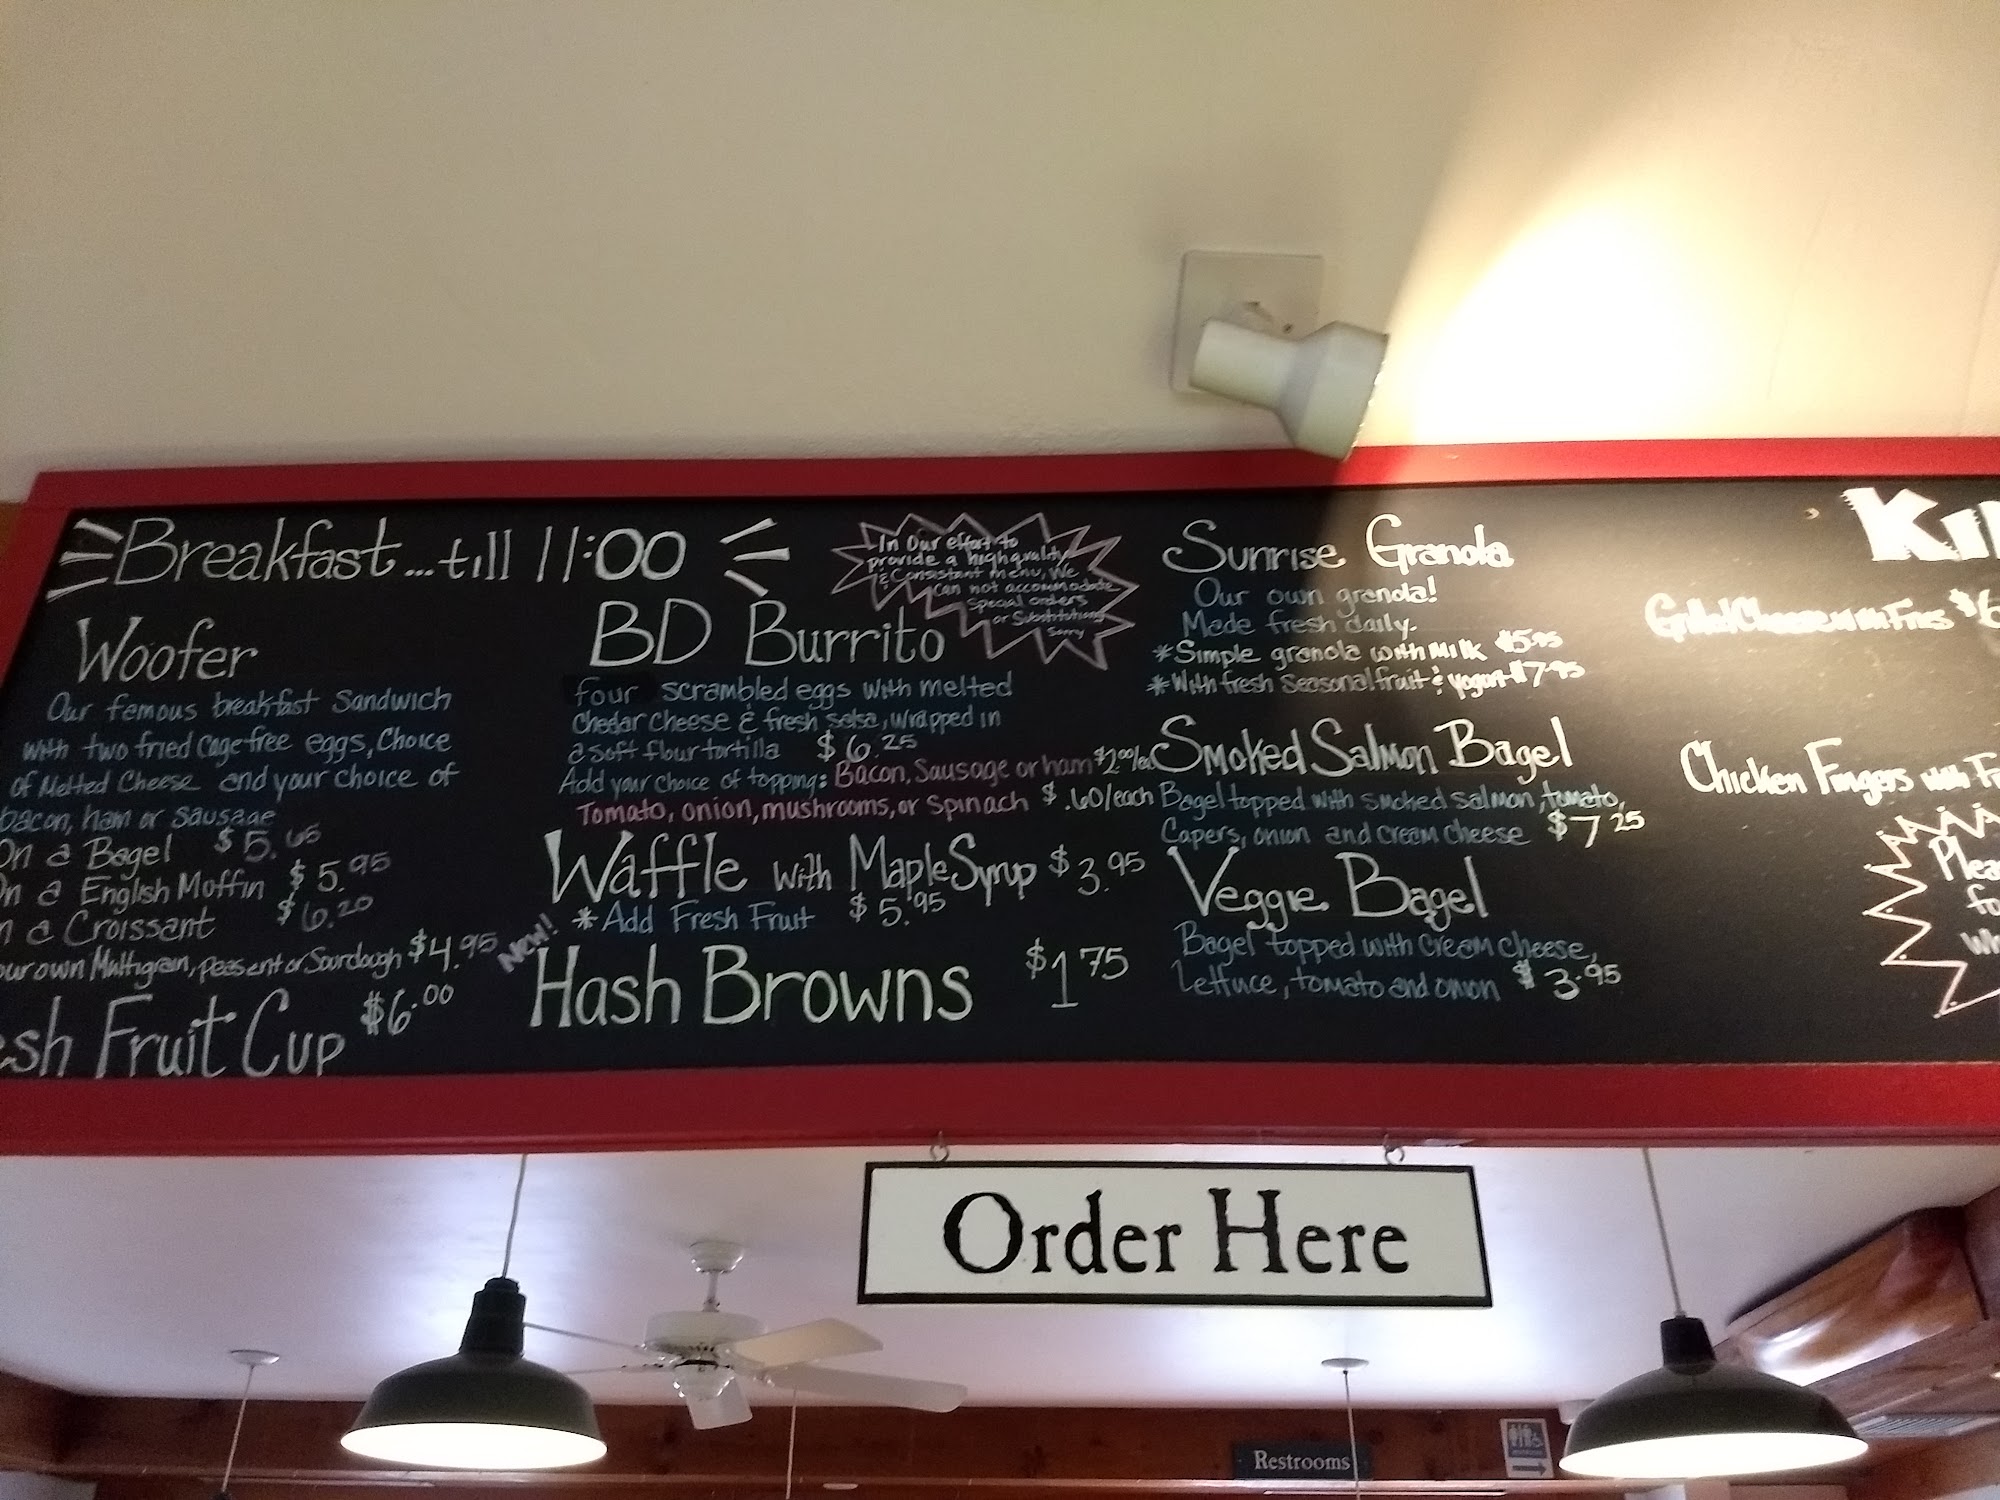 Breakfast...till 11:00
Woofer
Our femous breakfast Sandwich
with two fried cage free eggs, Choice
of Melted Cheese and your choice of
bacon, ham or sausage
On a Bagel $5.65
On a English Moffin $5.95
a Croissant $6.20
our own Multigrain, peasent or Sourdough $4.95
Fruit Cup $6.00
BD Burrito
four scrambled eggs with melted
Chedar cheese & fresh salsa, wrapped in
a soft flour tortilla $6.25
Add your choice of topping: Bacon, Sausage or ham $2.00/ea
Tomato, onion, mushrooms, or Spinach $.60/each
Waffle with Maple Syrup $3.95
*Add Fresh Fruit $5.95
New!
Hash Browns $1.75
In Our effort to
provide a high quality
& Consistant menu, We
Can not accommodate
Special orders
or Substitutions
Sorry
Sunrise Granola
Our own granola!
Made fresh daily.
*Simple granola with Milk $5.95
*With fresh seasonal fruit & yogurt $7.95
Smoked Salmon Bagel
Bagel topped with smoked salmon, tomato,
Capers, onion and cream cheese $7.25
Veggie Bagel
Bagel topped with Cream cheese,
Lettuce, tomato and onion $3.95
Grilled Cheese with Fries $6
Chicken Fingers with
Order Here
Restrooms